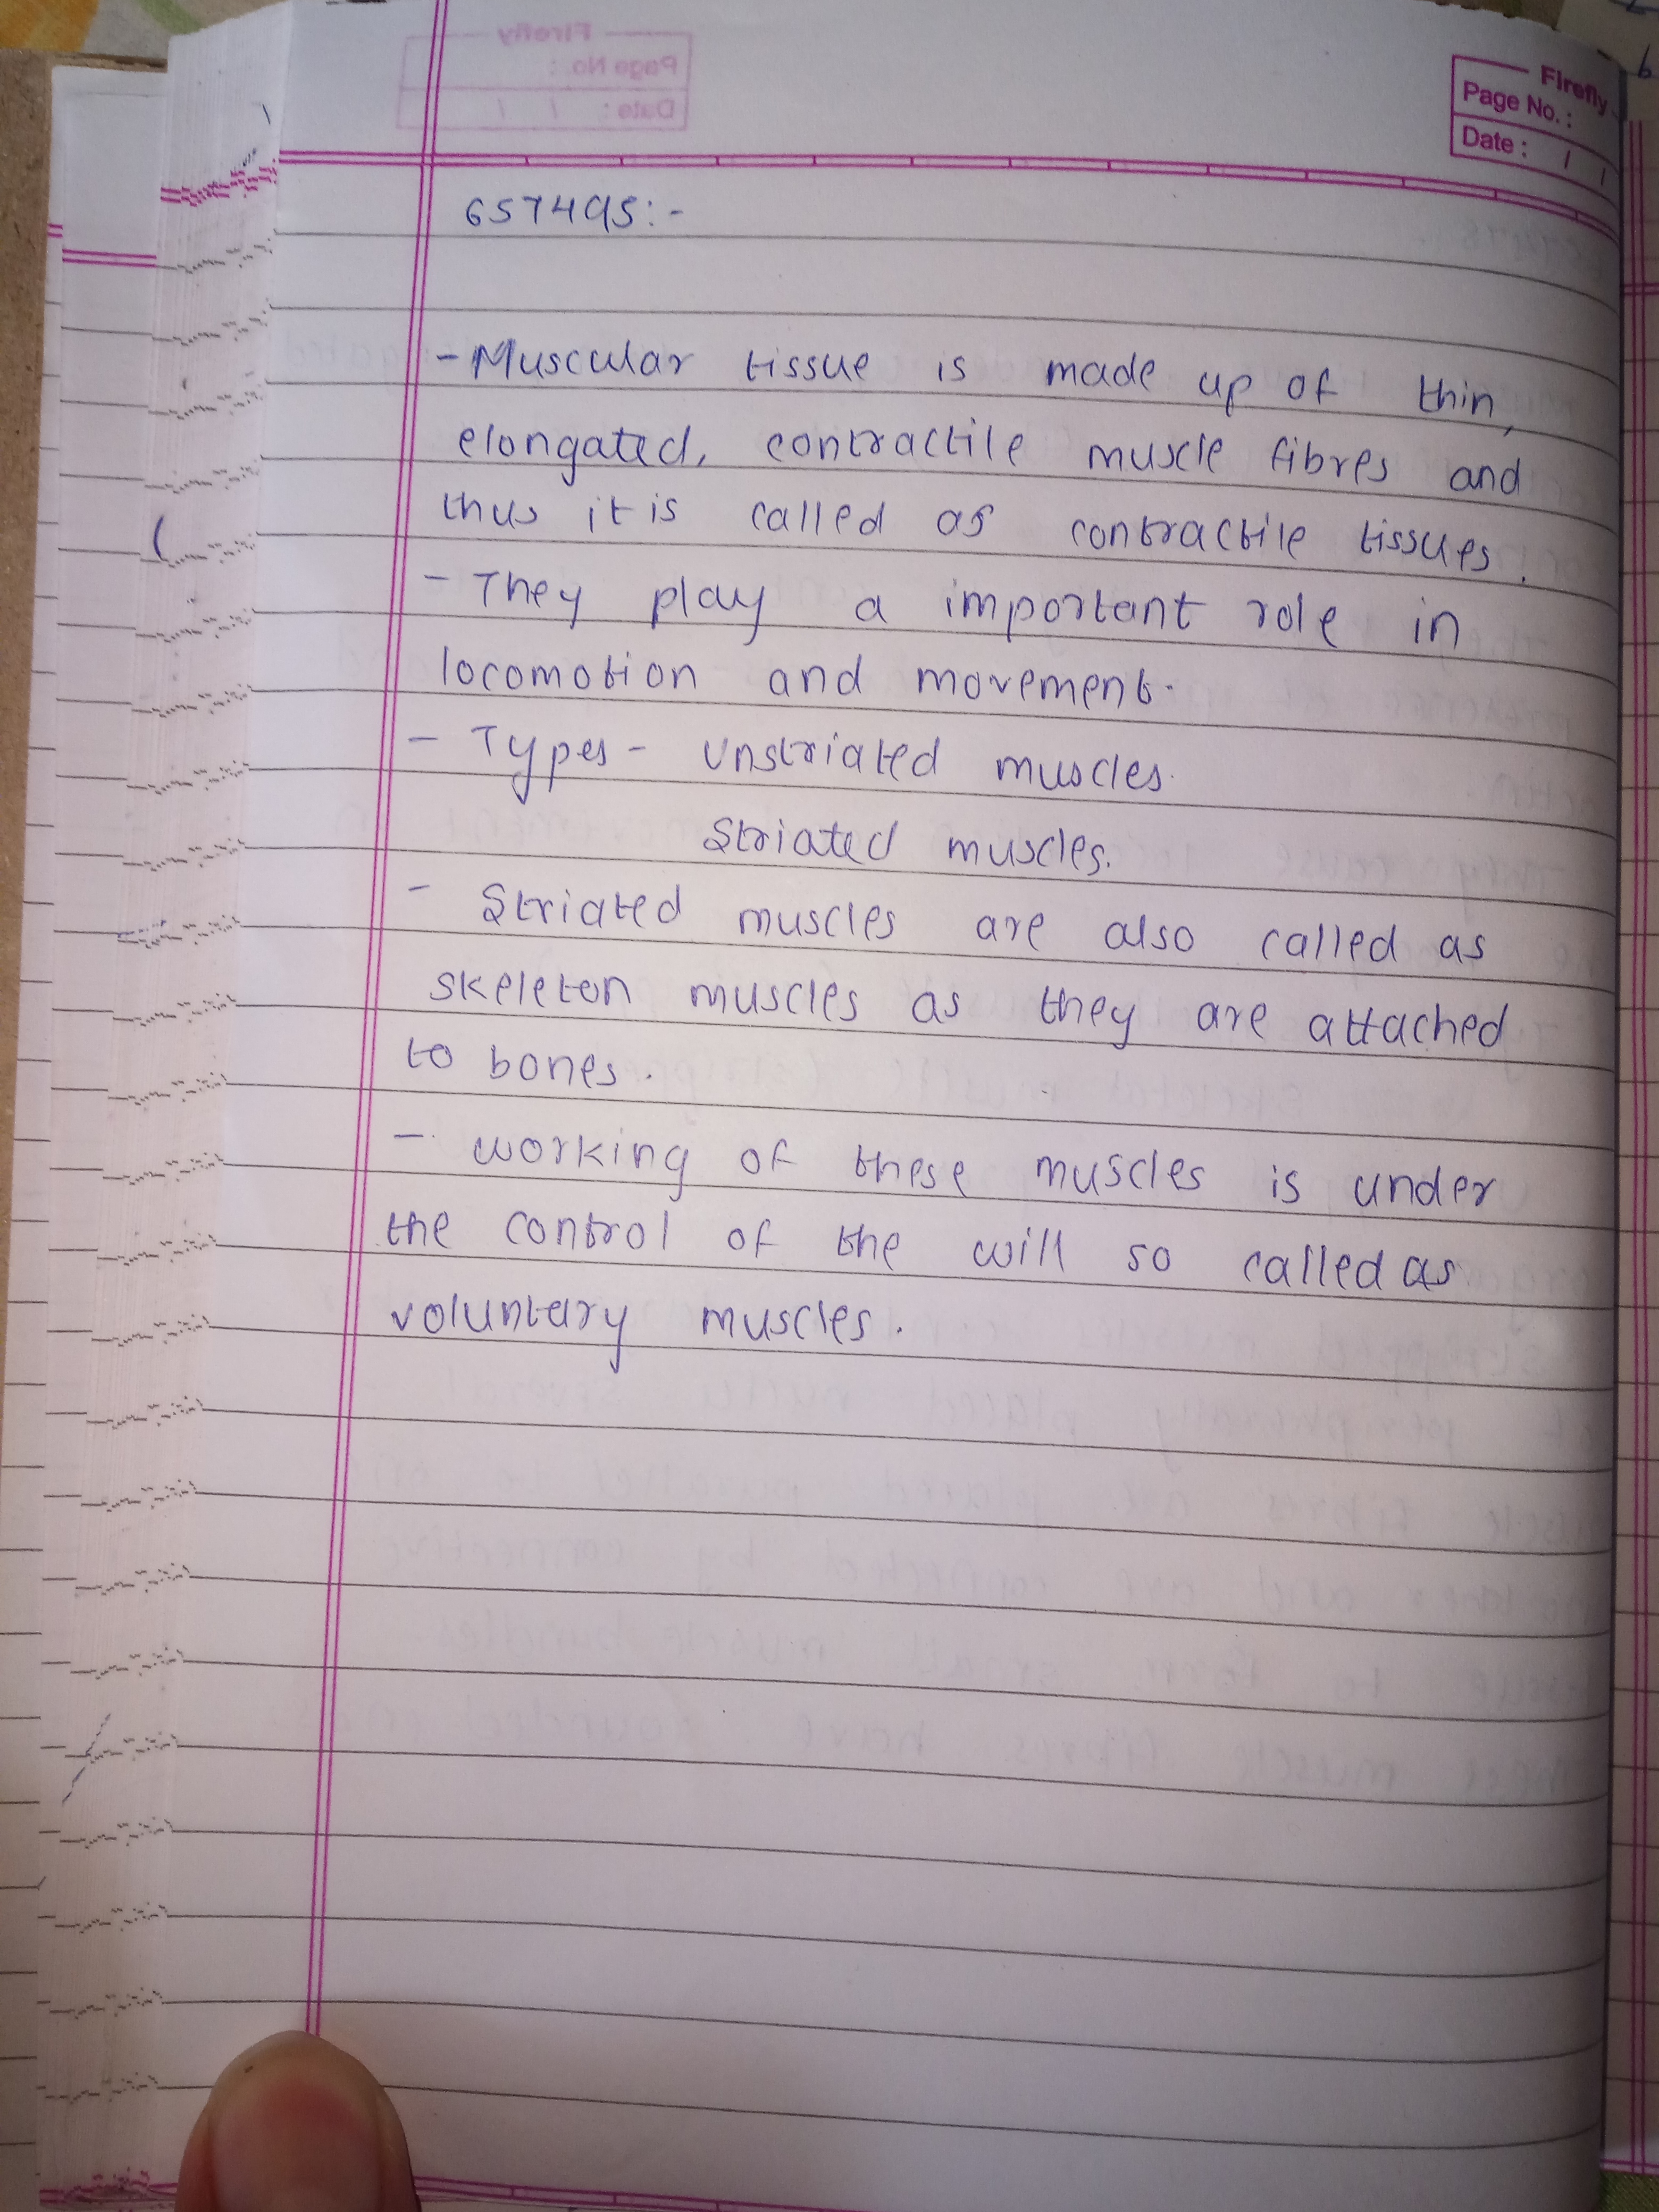 Firefly
Page No.:
Date: / /
657495:-
- Muscular tissue is made up of thin,
elongated, contractile muscle fibres and
thus it is called as contractile tissues.
- They play a important role in
locomotion and movement.
- Types - Unstriated muscles.
Striated muscles.
- Striated muscles are also called as
skeleton muscles as they are attached
to bones.
- working of these muscles is under
the control of the will so called as
voluntary muscles.